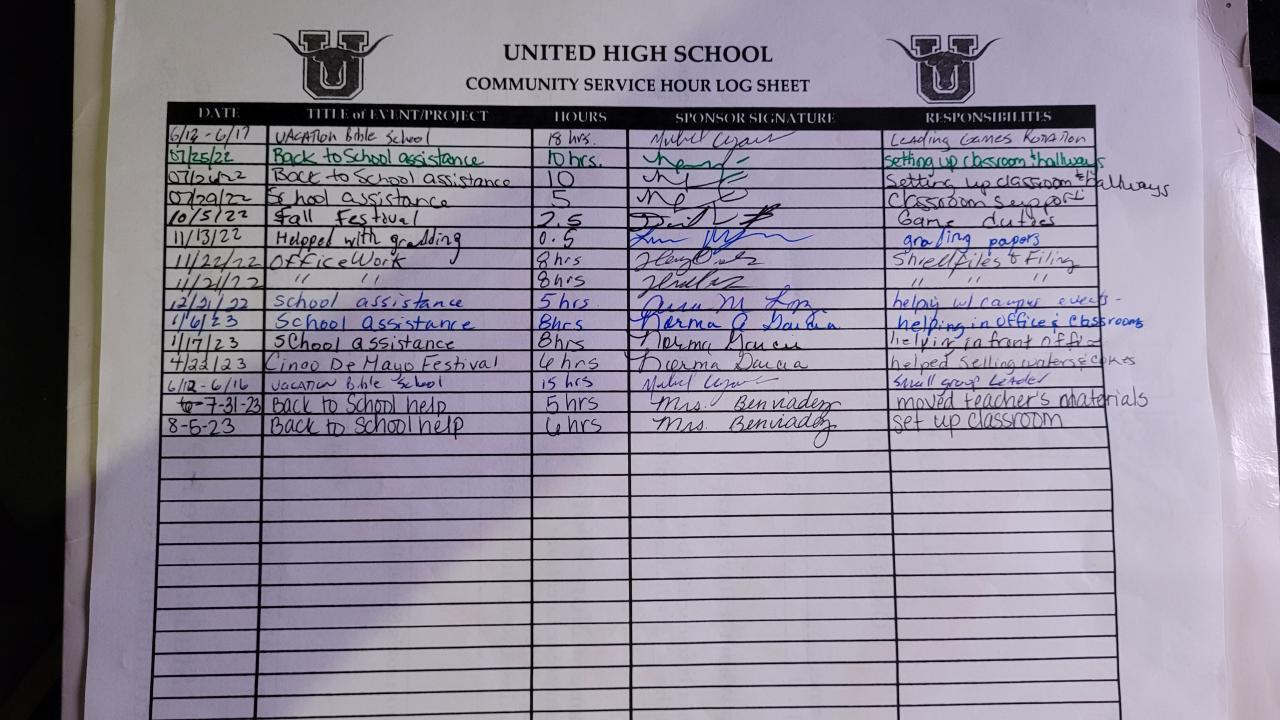 UNITED HIGH SCHOOL
COMMUNITY SERVICE HOUR LOG SHEET
DATE TITLE of EVENT/PROJECT HOURS SPONSOR SIGNATURE RESPONSIBILITIES
6/12 - 6/17 VACATION Bible School 18 hrs. Leading Games Rotation
07/25/22 Back to School assistance 10 hrs. setting up classroom & hallways
Back to School assistance 10 Setting up classroom & hallways
07/29/22 School assistance 5 Classroom support
10/5/22 Fall Festival 2.5 Game duties
11/13/22 Helpped with gradding 0.5 grading papers
11/22/22 Office Work 8hrs & Filing
11/21/22 " " 8hrs " "
12/21/22 School assistance 5 hrs. helping w/ campus events -
1/6/23 School assistance 8hrs Norma Garcia helping in office & classrooms
1/17/23 School assistance 8hrs Norma Garcia helping in front office
4/22/23 Cinco De Mayo Festival 6 hrs Norma Garcia helped selling waters & cokes
6/12 - 6/16 VACATION Bible School 15 hrs Small group Leader
7-31-23 Back to School help 5 hrs Mrs. Benviadez moved teacher's materials
8-5-23 Back to School help 6 hrs Mrs. Benviadez set up classroom